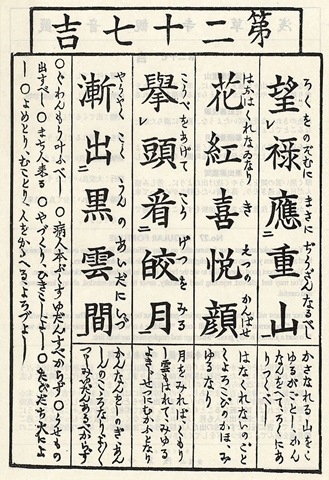 第二十七吉
望禄應重山
ろくをのぞむに まさにぢうざんなるべし
花紅喜悦顔
はなはくれなゐなり きえつのかんばせ
擧頭看皎月
こうべをあげて こうげつをみる
漸出黒雲間
やうやくこくうんのあいだにいづ
かさなれる山をこ
ゆるがごとし、かん
なんをへてろくにあ
りつくべし
はなくれないのごと
くよろこびのかほ、み
ゆるなり
月をみれば、くもり
し雲もはれて、みゆる
よきじせつにむかふとなり
かんなんをしのぎ、ぜん
○ぐわんもう叶ふべし ○病人本ぷくす、ゆだんすべからず ○うせもの
出すべし ○まち人来る ○やづくり、ひきこしよし ○たびだち大によ
し ○よめとり、むことり、人をかゝへるよろづよし